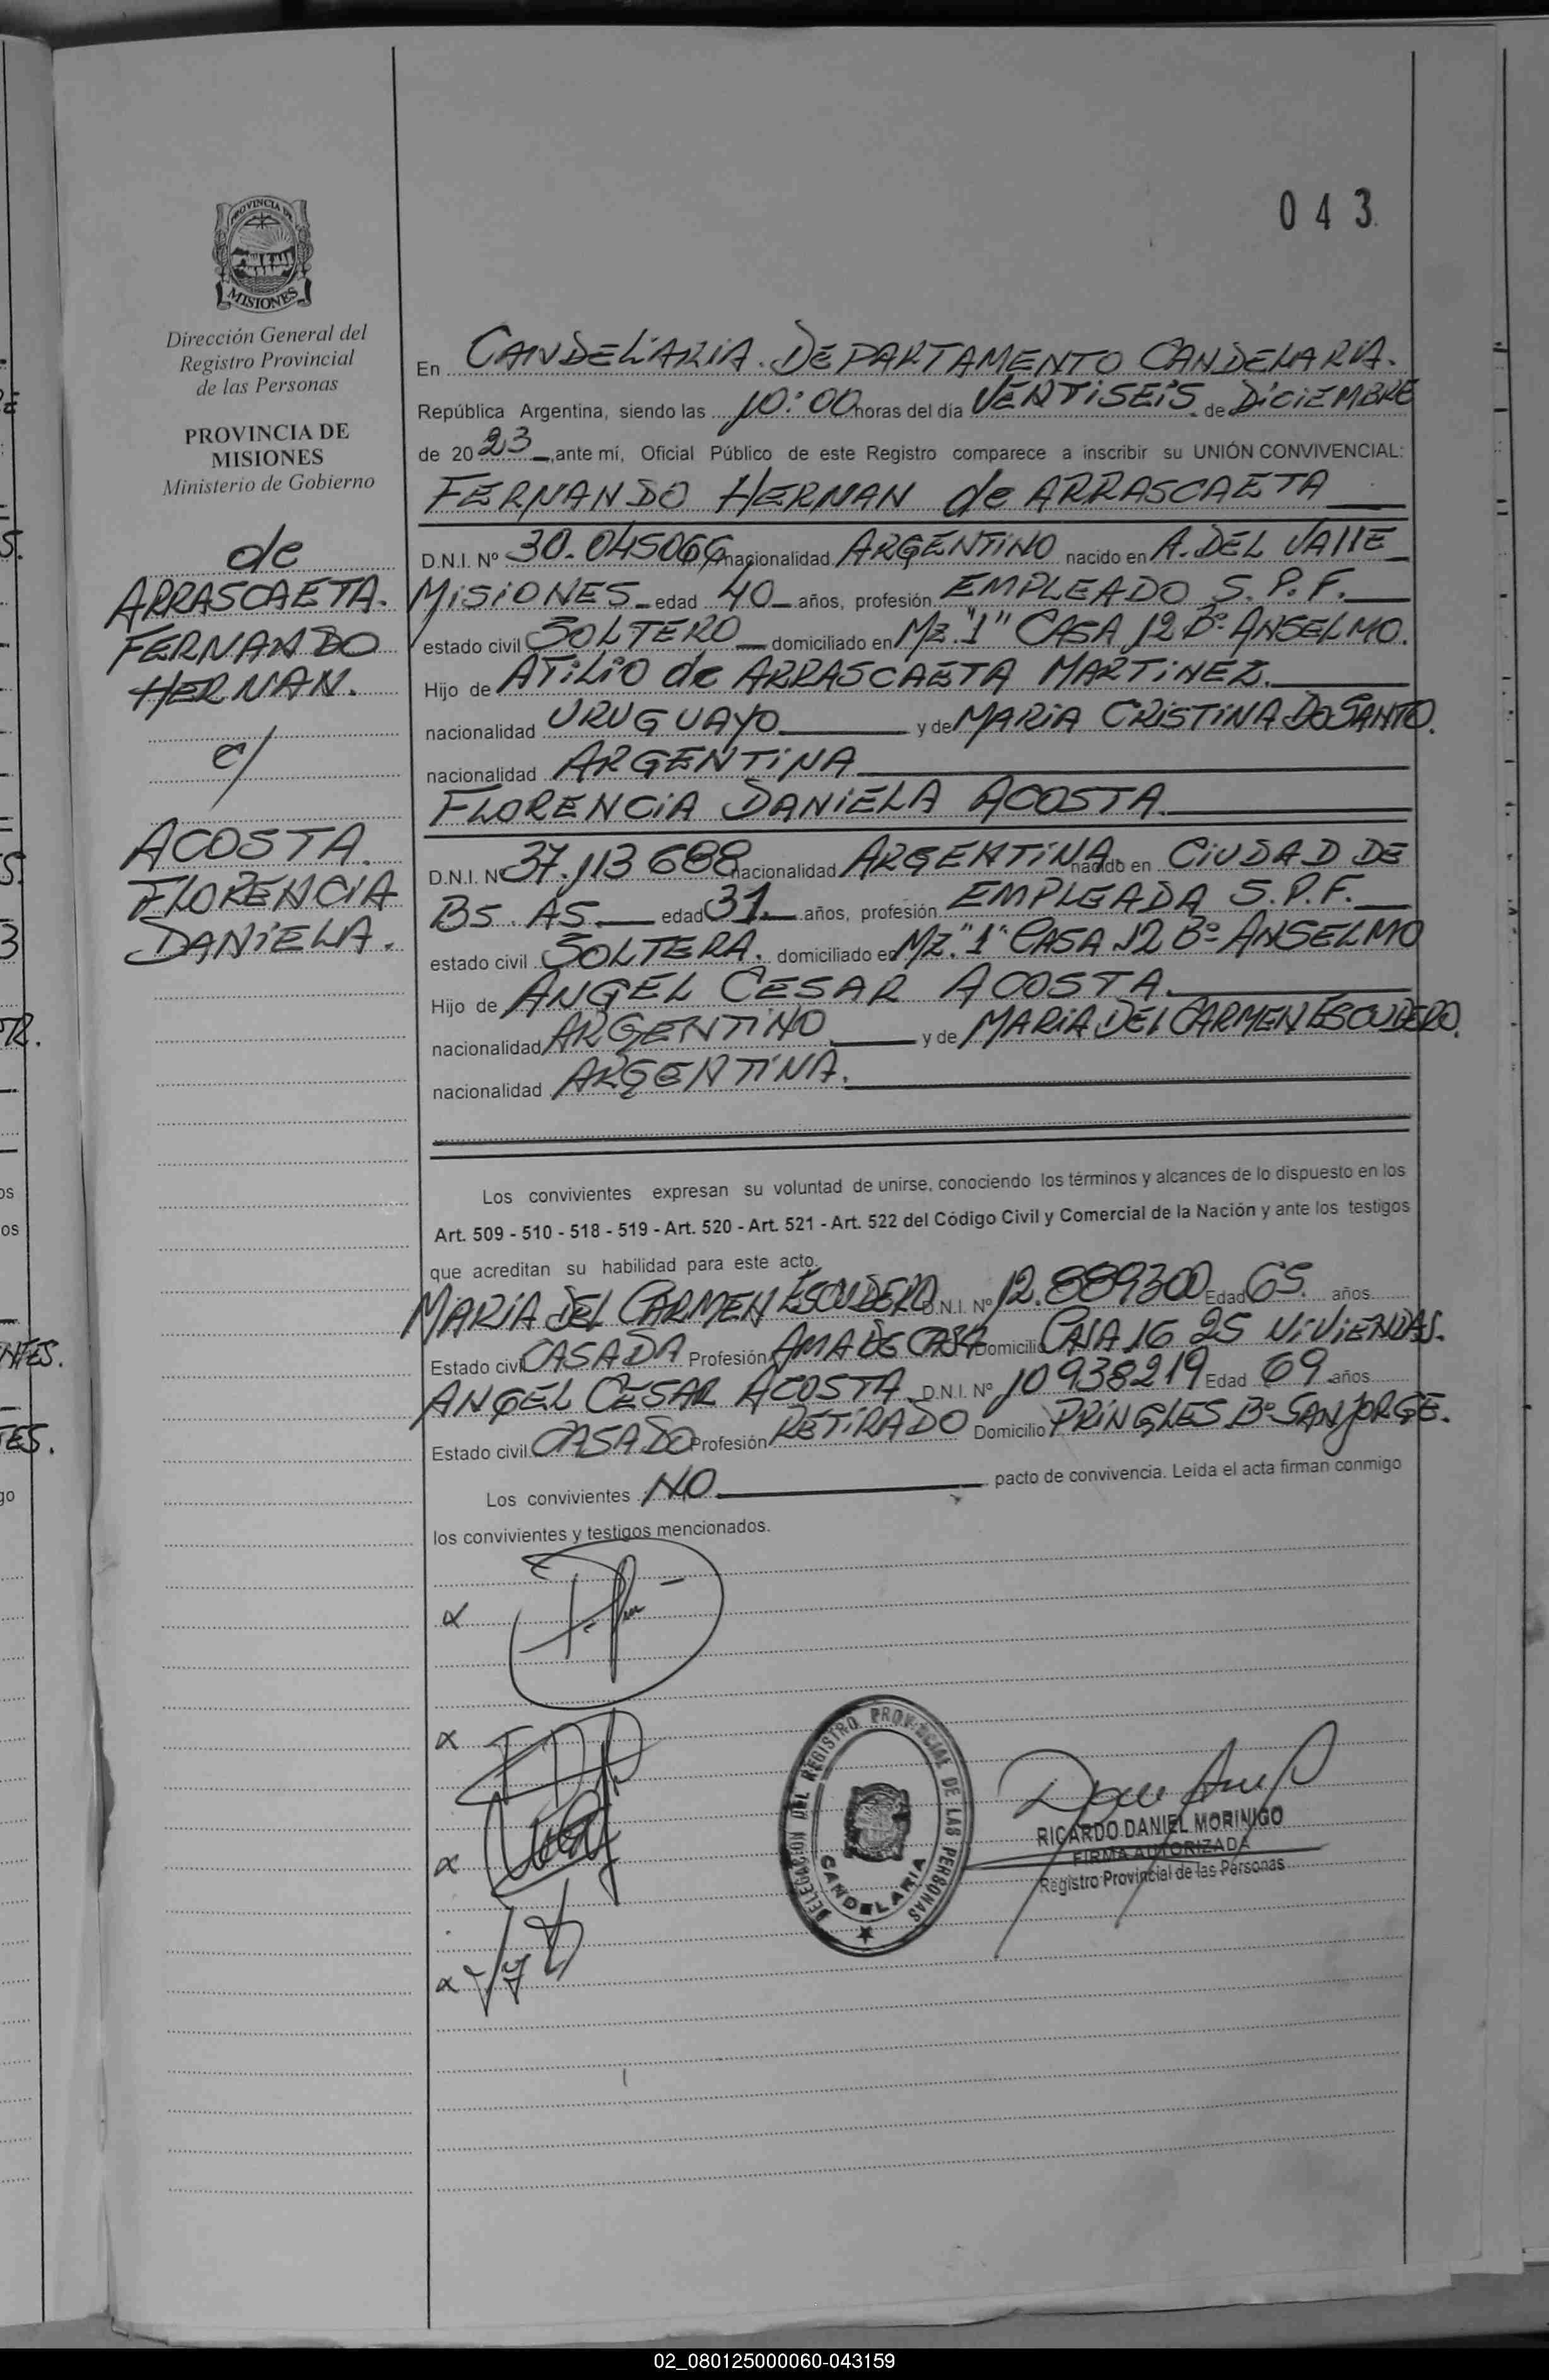 043
PROVINCIA DE
MISIONES
Dirección General del
Registro Provincial
de las Personas
PROVINCIA DE
MISIONES
Ministerio de Gobierno
de
ARRASCAETA.
FERNANDO
HERNAN.
c/
ACOSTA.
FLORENCIA
DANIELA.
En CANDELARIA. DEPARTAMENTO CANDELARIA.
República Argentina, siendo las 10:00 horas del día VENTISEIS de DICIEMBRE
de 2023, ante mí, Oficial Público de este Registro comparece a inscribir su UNIÓN CONVIVENCIAL:
FERNANDO HERNAN de ARRASCAETA
D.N.I. Nº 30.045066 nacionalidad ARGENTINO nacido en A. DEL VALLE
MISIONES edad 40 años, profesión EMPLEADO S.P.F.
estado civil SOLTERO domiciliado en Mz. "1" CASA 12 Bº ANSELMO.
Hijo de ATILIO de ARRASCAETA MARTINEZ.
nacionalidad URUGUAYO y de MARIA CRISTINA DO SANTO.
nacionalidad ARGENTINA
FLORENCIA DANIELA ACOSTA.
D.N.I. Nº 37.113688 nacionalidad ARGENTINA nacido en CIUDAD DE
BS. AS. edad 31 años, profesión EMPLEADA S.P.F.
estado civil SOLTERA. domiciliado en Mz. "1" CASA 12 Bº ANSELMO
Hijo de ANGEL CESAR ACOSTA.
nacionalidad ARGENTINO y de MARIA DEL CARMEN ESCUDERO.
nacionalidad ARGENTINA.
Los convivientes expresan su voluntad de unirse, conociendo los términos y alcances de lo dispuesto en los
Art. 509 - 510 - 518 - 519 - Art. 520 - Art. 521 - Art. 522 del Código Civil y Comercial de la Nación y ante los testigos
que acreditan su habilidad para este acto.
MARIA DEL CARMEN ESCUDERO D.N.I. Nº 12.889300 Edad 65. años
Estado civil CASADA Profesión AMA DE CASA Domicilio CASA 16 25 VIVIENDAS.
ANGEL CESAR ACOSTA. D.N.I. Nº 10938219 Edad 69 años
Estado civil CASADO Profesión RETIRADO Domicilio PRINGLES Bº SAN JORGE.
Los convivientes NO pacto de convivencia. Leída el acta firman conmigo
los convivientes y testigos mencionados.
DELEGACION DEL REGISTRO PROVINCIAL DE LAS PERSONAS
CANDELARIA
RICARDO DANIEL MORINIGO
FIRMA AUTORIZADA
Registro Provincial de las Personas
02_080125000060-043159